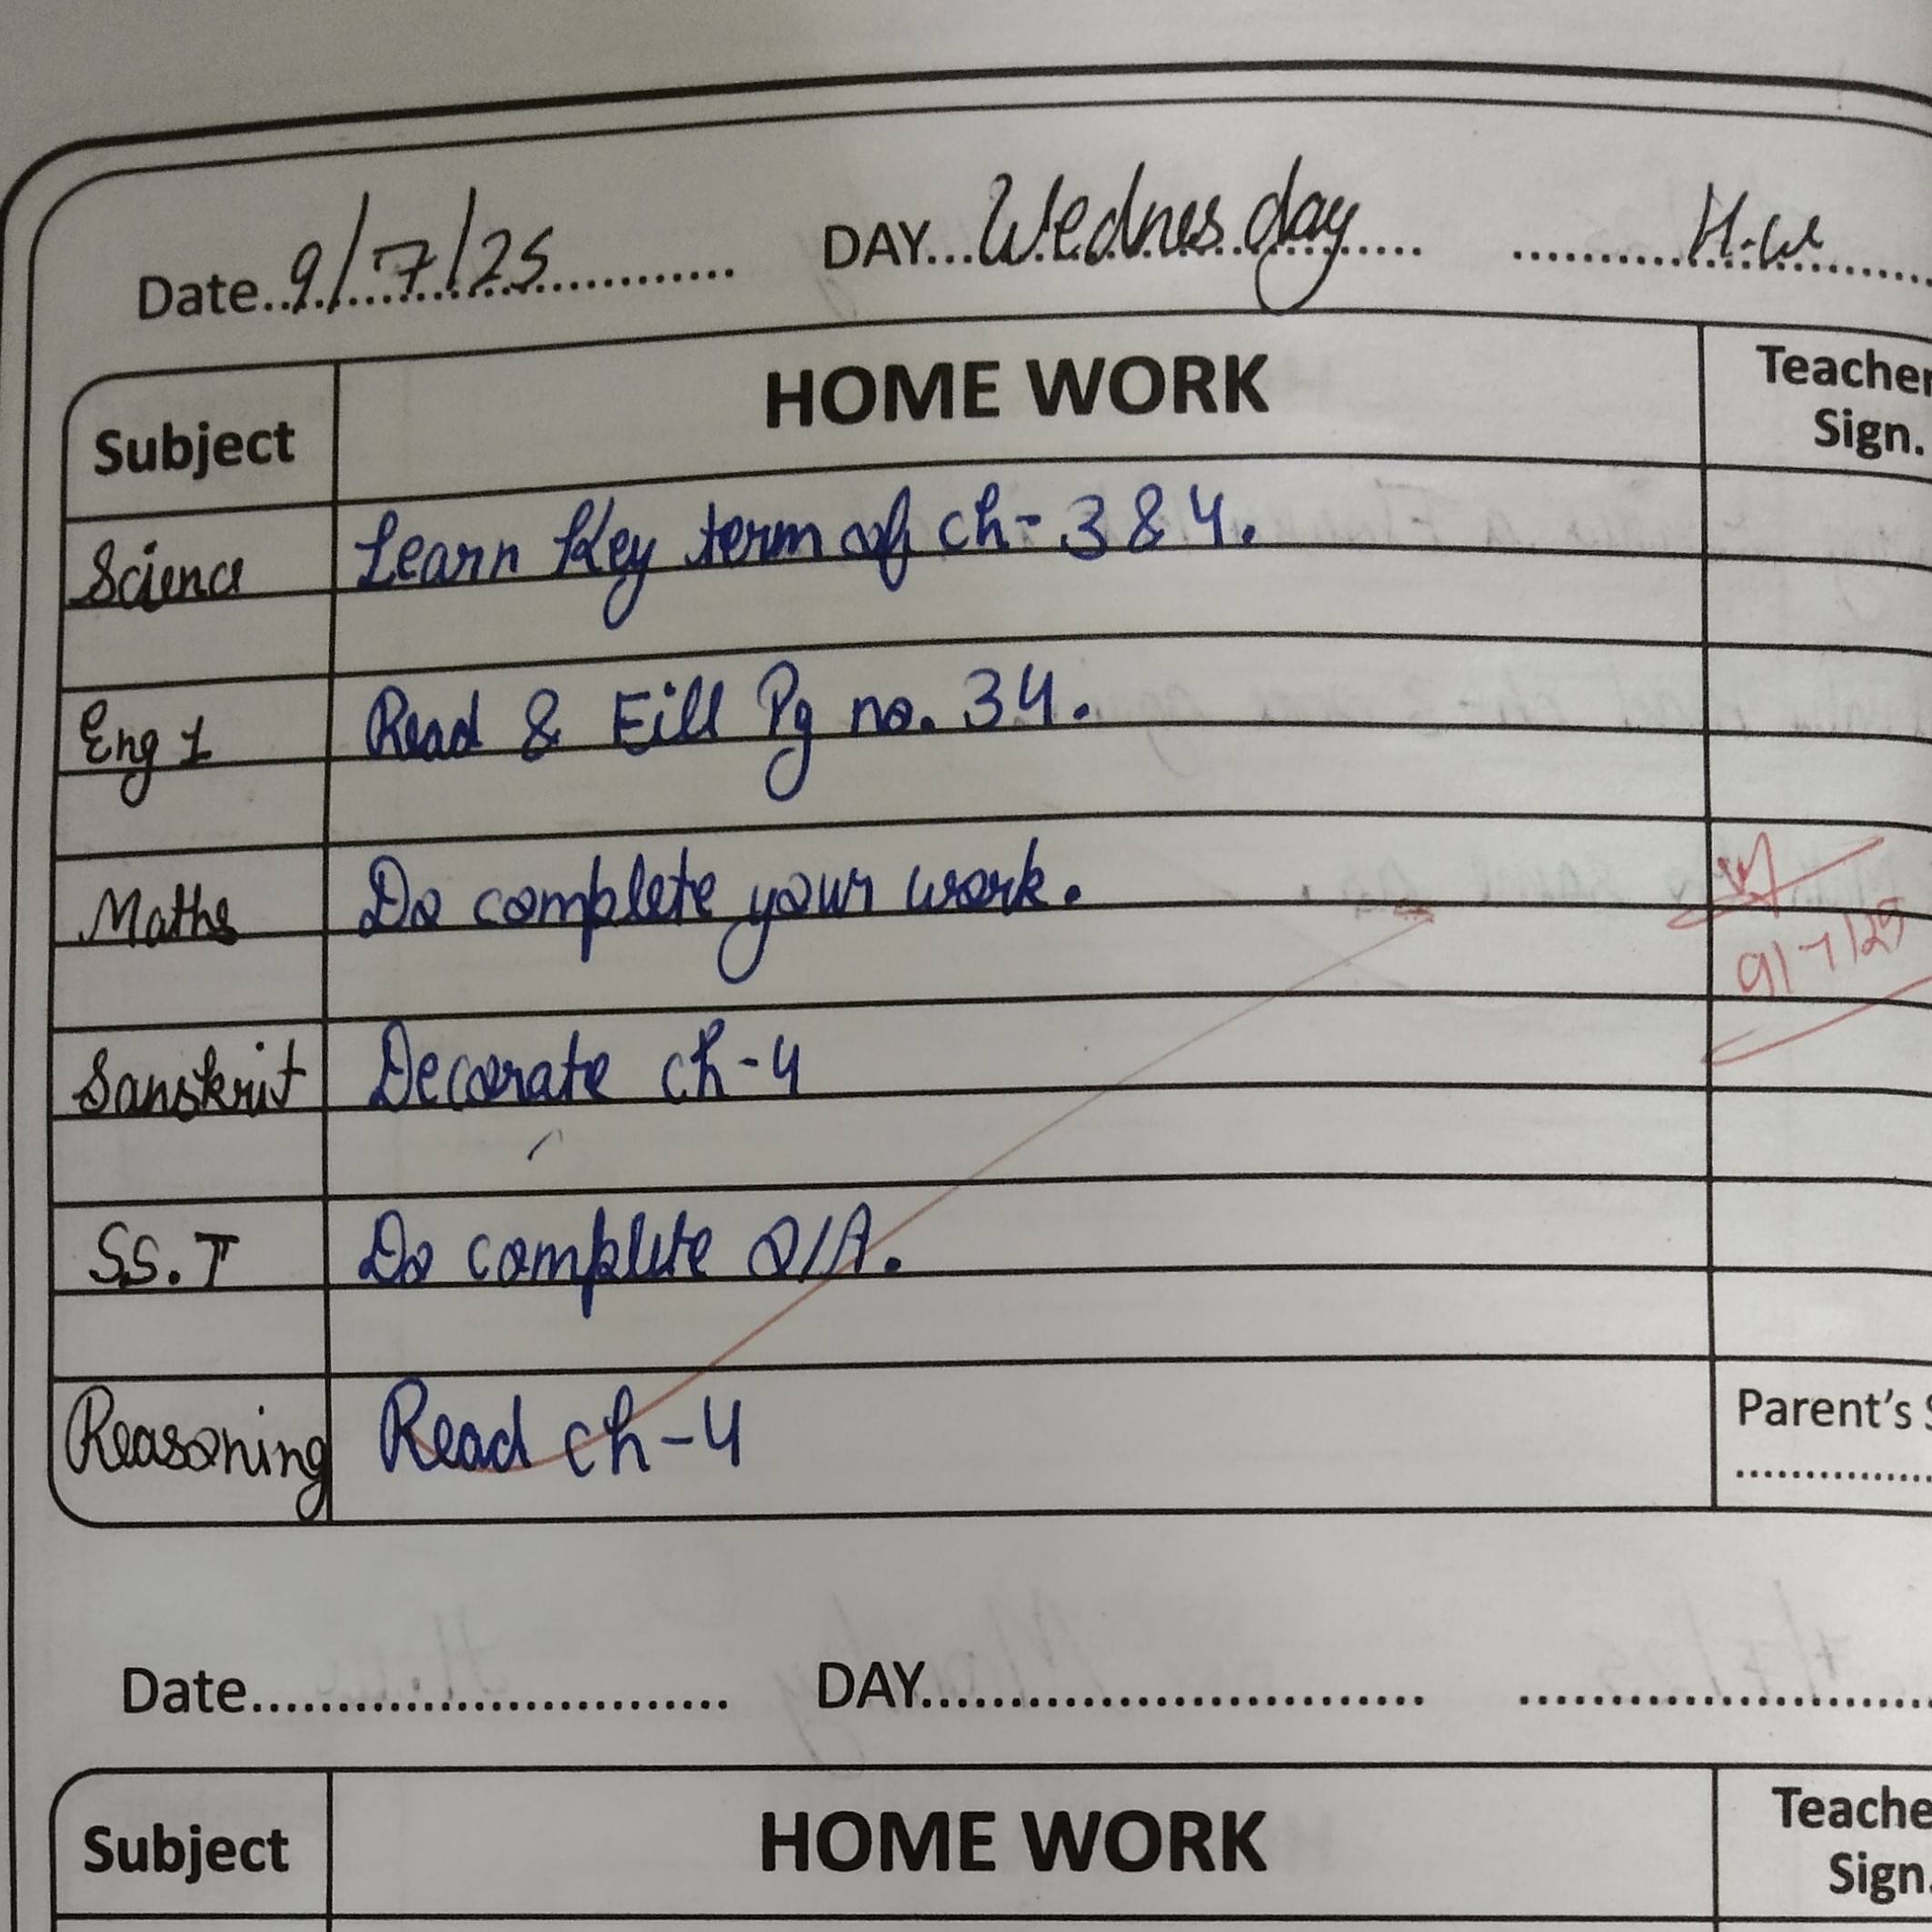 Date..9/7/25............ DAY...Wednesday..... ............H.w.......
Subject HOME WORK Teacher Sign.
Science Learn Key term of ch-3 & 4.
Eng 1 Read & Eill Pg no. 34.
Maths Do complete your work.
9/7/25
Sanskrit Decorate ch-4
S.S.T Do complete Q/A.
Reasoning Read ch-4
Parent's
Date............................. DAY............................... .........................
Subject HOME WORK Teache Sign.